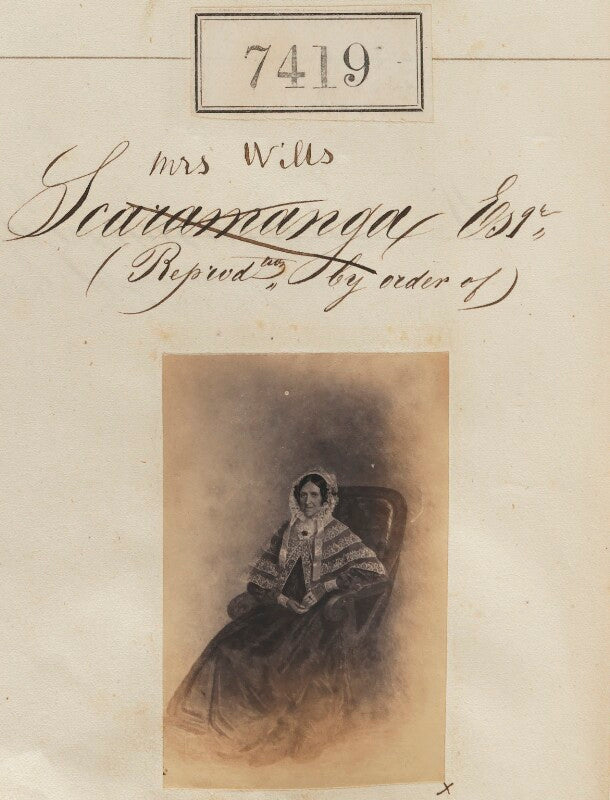 7419
Mrs Wills
Scaramanga Esqr
(Reprodtion by order of)
x